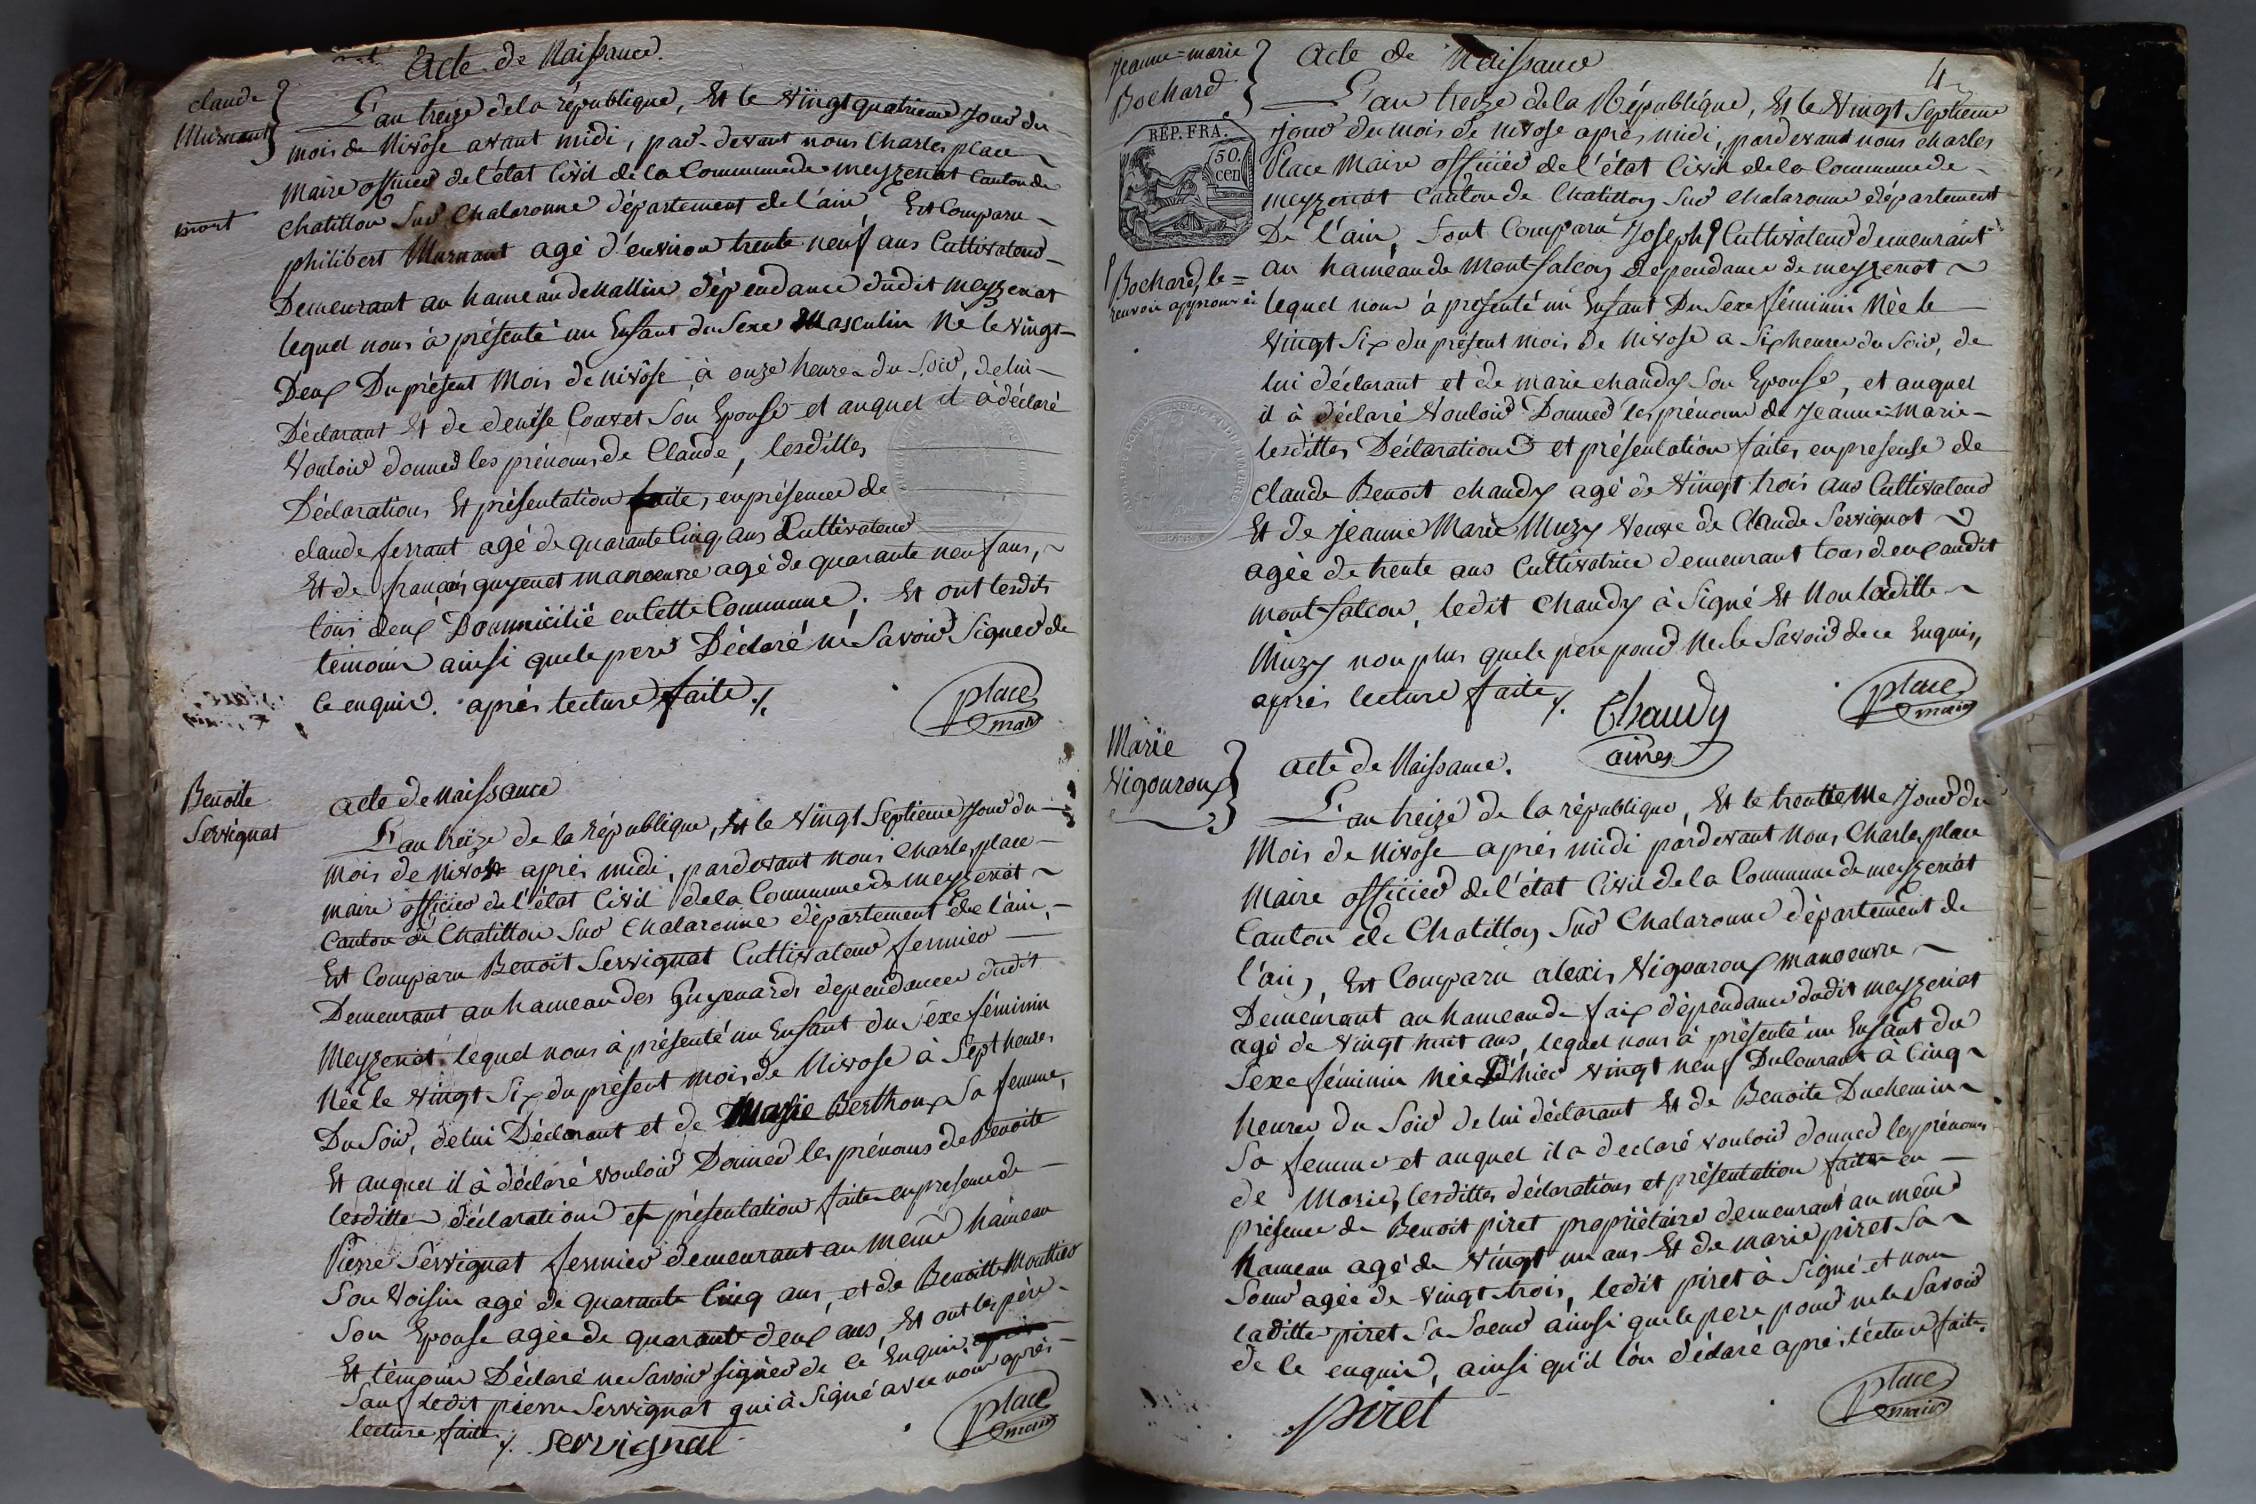 Acte de Naissance
claude
Murnant
L'an treize de la république, Et le vingt quatrieme jour du
mois de Nivose avant midi, par-devant nous Charles place
Maire officier de l'état Civil de la Commune de meyzeriat Canton de
mort
Chatillon Sur Chalaronne département de l'ain Est Comparu
philibert Murnant agé d'environ trente neuf ans Cultivateur
Demeurant au hameau de Mallin dépendance dudit meyzeriat
lequel nous à présenté un Enfant du Sexe Masculin Né le vingt
Deux Du présent Mois de nivôse à onze heures du Soir, de lui
Déclarant Et de denise Couvet Son Epouse et auquel il à déclaré
Vouloir donner les prénoms de Claude, lesdittes
Déclarations Et présentation faite, en présence de
claude ferrant agé de quarante Cinq ans Cultivateur
Et de françois guyenet manoeuvre agé de quarante neuf ans,
tous deux Dommicilié en Cette Commune. Et ont lesdits
témoins ainsi que le pere Déclaré ne Savoir Signer de
Ce enquis. après lecture faite ./.
place
maire
Benoite
Servignat
acte de naissance
L'an treize de la République, Et le vingt Septieme jour du
mois de nivose après midi, pardevant nous Charles place
maire officier de l'état Civil de la Commune de meyzeriat
Canton de Chatillon Sur Chalaronne département de l'ain,
Est Comparu Benoit Servignat Cultivateur fermier
Demeurant au hameau des Guyenards dependances dudit
Meyzeriat lequel nous à présenté un Enfant du Sexe féminin
Née le vingt Six du présent mois de Nivose à Sept heures
Du Soir, de lui Déclarant et de Marie Berthoux Sa femme,
Et auquel il à déclaré vouloir Donner les prénoms de Benoite
lesdittes déclarations et présentation faites en presence de
Pierre Servignat fermier demeurant au meme hameau
Son Voisin agé de quarante Cinq ans, et de Benoitte Mouthier
Son Epouse agée de quarante deux ans, Et ont les père
Et témoin Déclaré ne Savoir signer de ce Enquis,
Sauf ledit pierre Servignat qui à Signé avec nous après
lecture faite ./. servignat
place
maire
4
jeanne=marie
Bochard
acte de Naissance
L'an treize de la République, Et le vingt Septieme
REP. FRA.
50.
cen
jour du mois de nivose après midi, pardevant nous charles
Place Maire officier de l'état Civil de la Commune de
meyzeriat Canton de Chatillon Sur Chalaronne département
De l'ain, Sont Comparu Joseph Cultivateur demeurant
Bochard, le=
renvoi approuvé
au hameau de Montfalcon dependance de meyzeriat
lequel nous à présenté un Enfant Du Sexe féminin Née le
vingt Six du présent mois de Nivose a Six heures du Soir, de
lui déclarant et de marie chaudy Son Epouse, et auquel
il à déclaré Vouloir Donner les prénoms de Jeanne=Marie
lesdittes Déclarations et présentation faites en presense de
Claude Benoit chaudy agé de Vingt trois ans Cultivateur
Et de Jeanne Marie Muzy Veuve de Claude Servignat
agée de trente ans Cultivatrice demeurant tous deux audit
montfalcon, ledit Chaudy à Signé Et Non laditte
Muzy non plus que le pere pour Ne le Savoir de ce Enquis,
après lecture faite ./.
Chaudy
place
maire
Marie
Vigouroux
acte de Naissance.
L'an treize de la république, Et le trentieme jour du
Mois de Nivose après midi pardevant Nous, Charles place
Maire officier de l'état Civil de la Commune de meyzeriat
Canton de Chatillon Sur Chalaronne département de
l'ain, Est Comparu alexis Vigouroux manoeuvre
Demeurant au hameau de faix dépendance dudit meyzeriat
agé de vingt huit ans, lequel nous à présenté un Enfant du
Sexe féminin Née D'hier vingt neuf Du Courant à Cinq
heures du Soir de lui déclarant Et de Benoite Duchemin
Sa femme et auquel il a declaré vouloir donner les prénoms
de Marie, lesdittes déclarations et présentation faites en
présence de Benoit piret propriétaire demeurant au même
hameau agé de vingt un ans Et de marie piret Sa
Soeur agée de vingt trois, ledit piret à Signé et non
laditte piret Sa Soeur ainsi que le pere pour ne le Savoir
de le enquis, ainsi qu'il l'on déclaré après lecture faite.
piret
place
maire